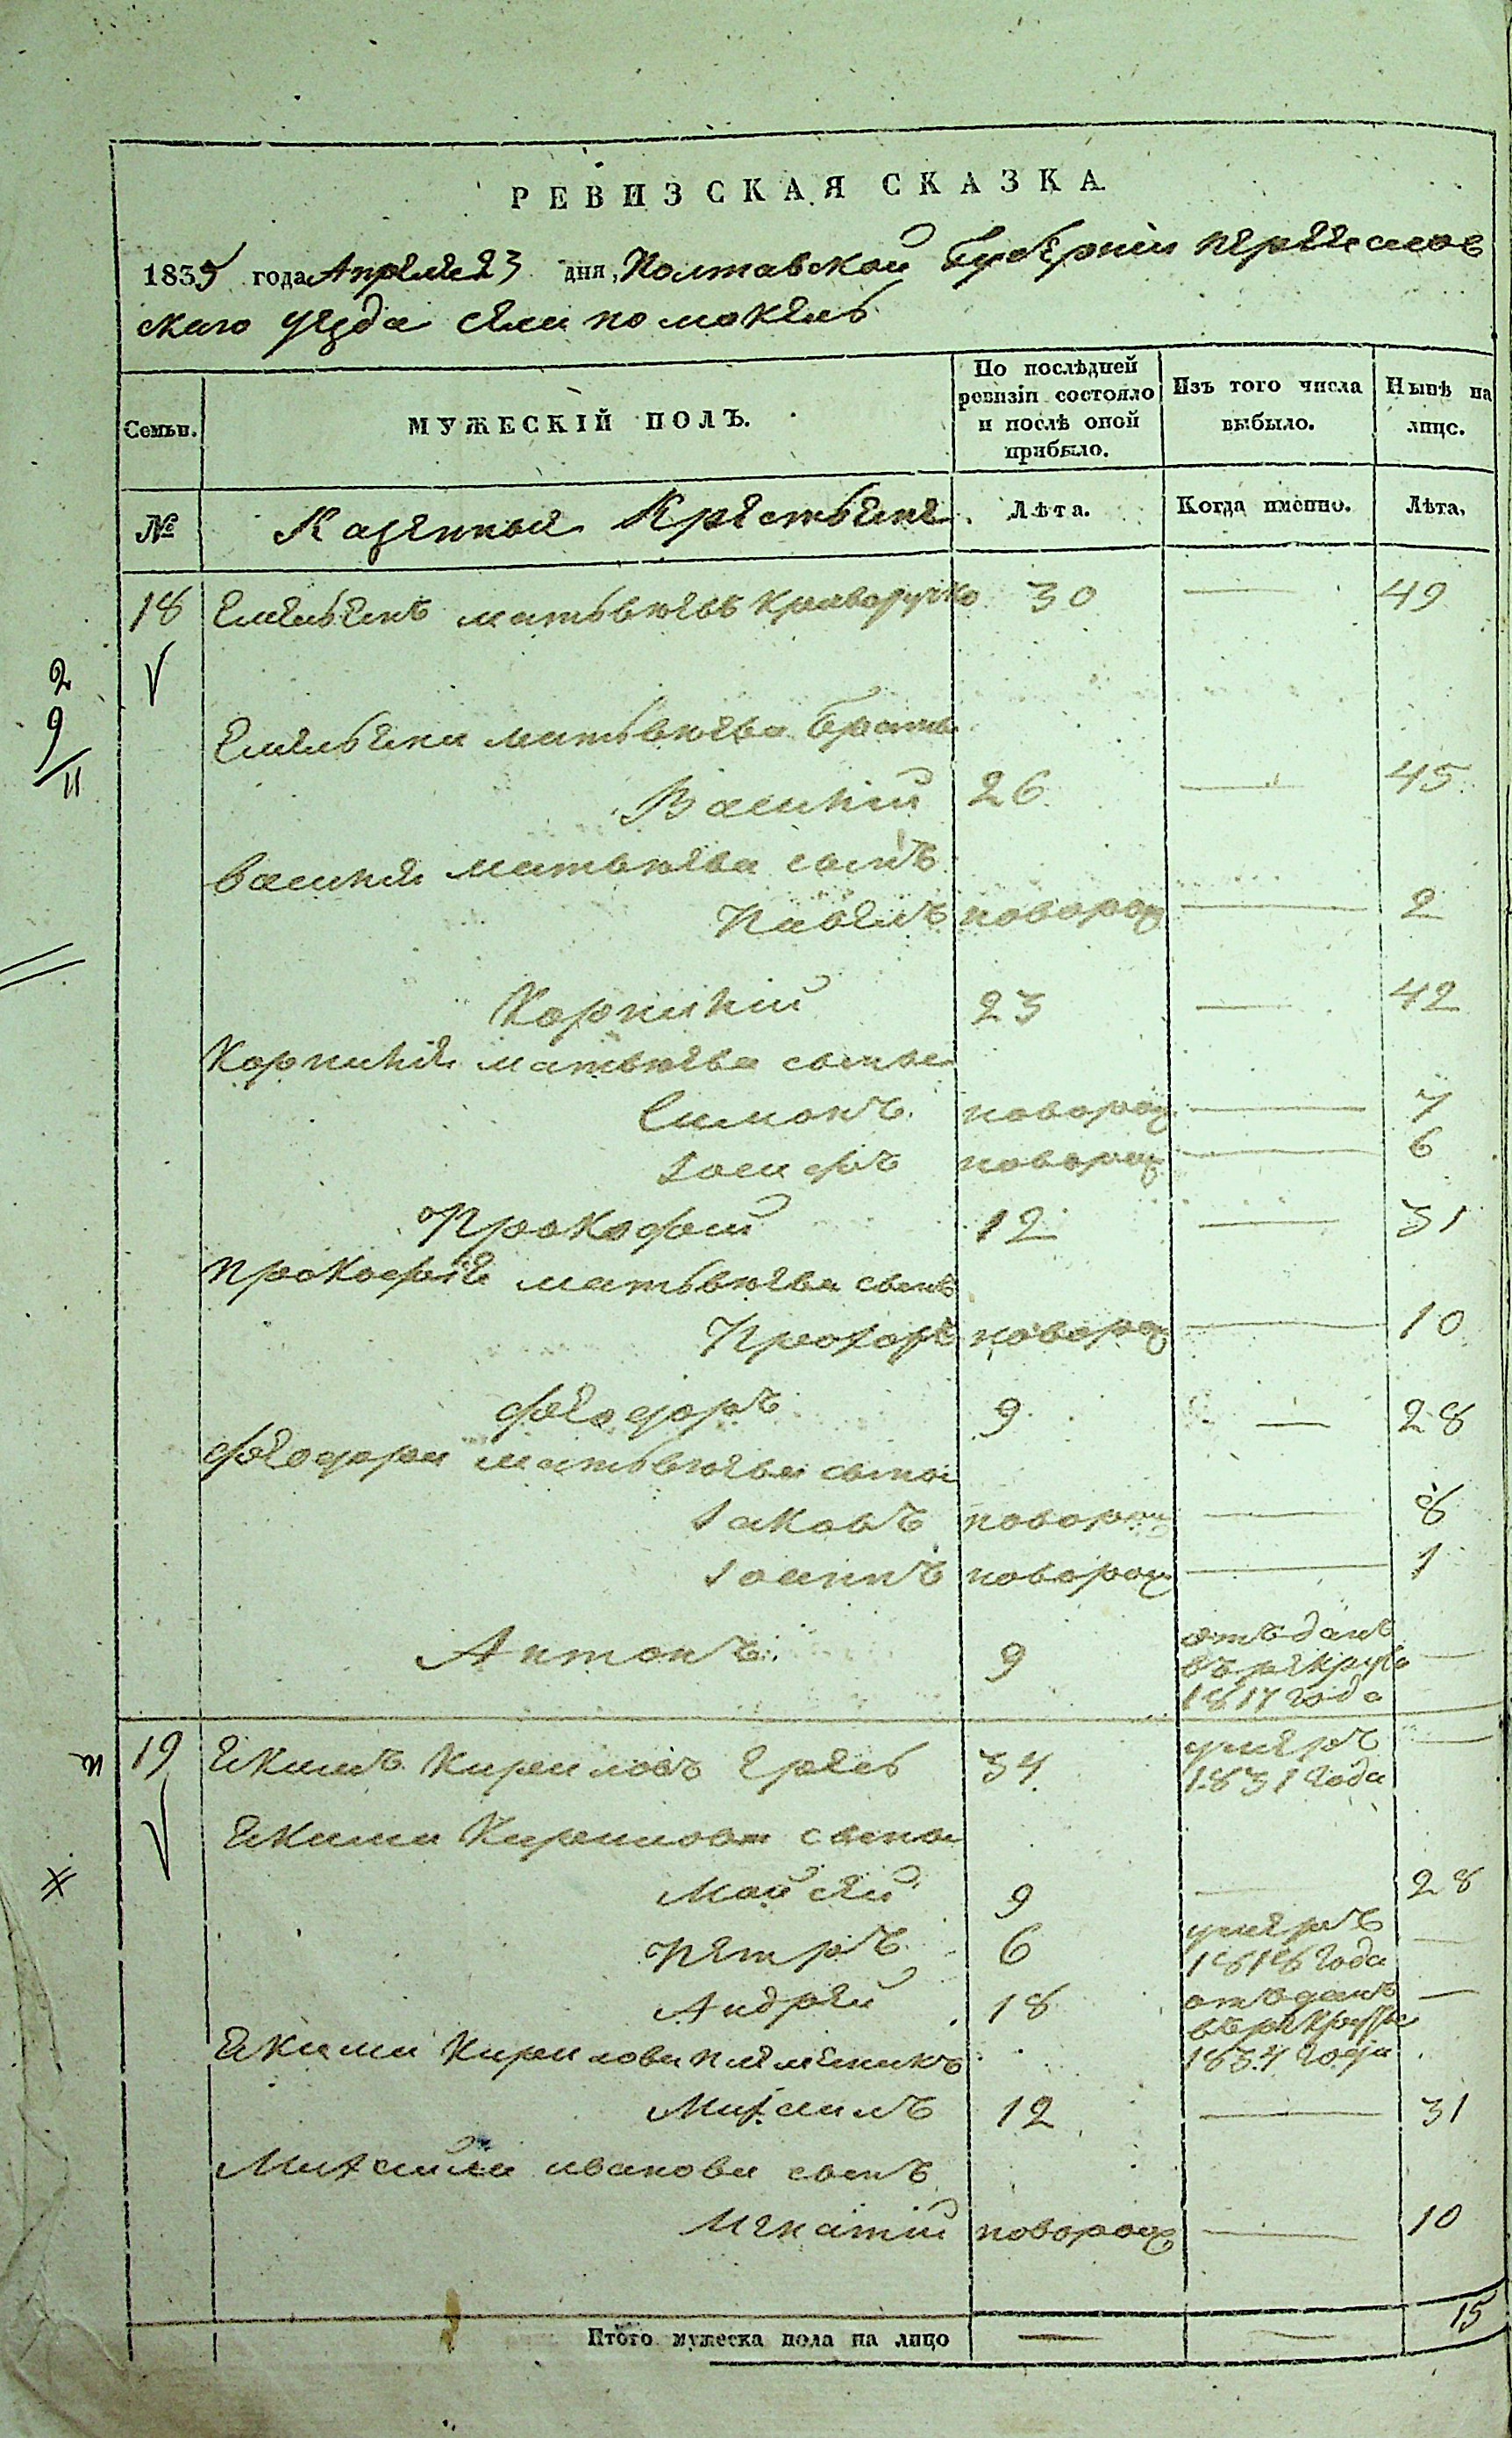 РЕВИЗСКАЯ СКАЗКА
1835 года Апреля 23 дня, Полтавской Губернии переяслов
скаго уезда села помоклей
Семьи. МУЖЕСКІЙ ПОЛЪ. По послѣдней ревизіи состояло и послѣ оной прибыло. Изъ того числа выбыло. Нынѣ на лицо.
№ Казенныя Крестьяне Лѣта. Когда именно. Лѣта.
18 Емельянъ матвѣевъ Криворучко 30 — 49
2
9
11
Емельяна матвѣева братья
Василій 26 — 45
Василія матвѣева сынъ
Павелъ наворож — 2
Корнилій 23 — 42
Корнилія матвѣева сыны
Симонъ новорож — 7
Іосифъ новорож — 6
Прокофій 12 — 31
Прокофія матвѣева сынъ
Прохоръ новорож — 10
Феодоръ 9 — 28
Феодора матвѣева сыны
Іаковъ новорож — 8
Іоаннъ новорож — 1
Антонъ 9 отъданъ —
въ рекруты
1817 года
п 19 Якимъ Кириловъ 34 умеръ —
1831 года
Якима Кирилова сыны
Мойсей 9 — 28
Петръ 6 умеръ —
1816 года
Андрей 18 отъданъ —
въ рекруты
1834 года
Якима Кирилова племяникъ
Михаилъ 12 — 31
Михаила иванова сынъ
Игнатій новорож — 10
Итого мужеска пола на лицо — — 15